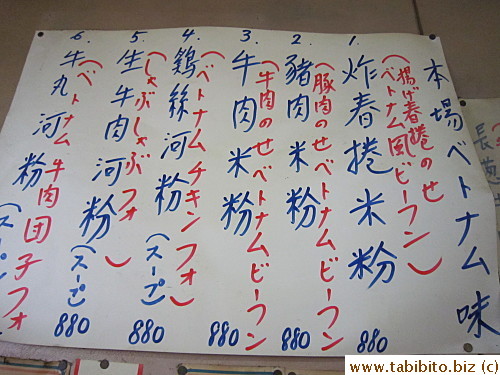 本場ベトナム味
1. 炸春捲米粉 880
(揚げ春捲のせ
ベトナム風ビーフン)
2. 豬肉米粉 880
(豚肉のせベトナムビーフン
3. 牛肉米粉 880
(牛肉のせベトナムビーフン
4. 鷄絲河粉(スープ) 880
(ベトナムチキンフォ)
5. 生牛肉河粉(スープ) 880
(しゃぶしゃぶフォ)
6. 牛丸河粉(スープ 880
(ベトナム牛肉団子フォ
www.tabibito.biz (c)